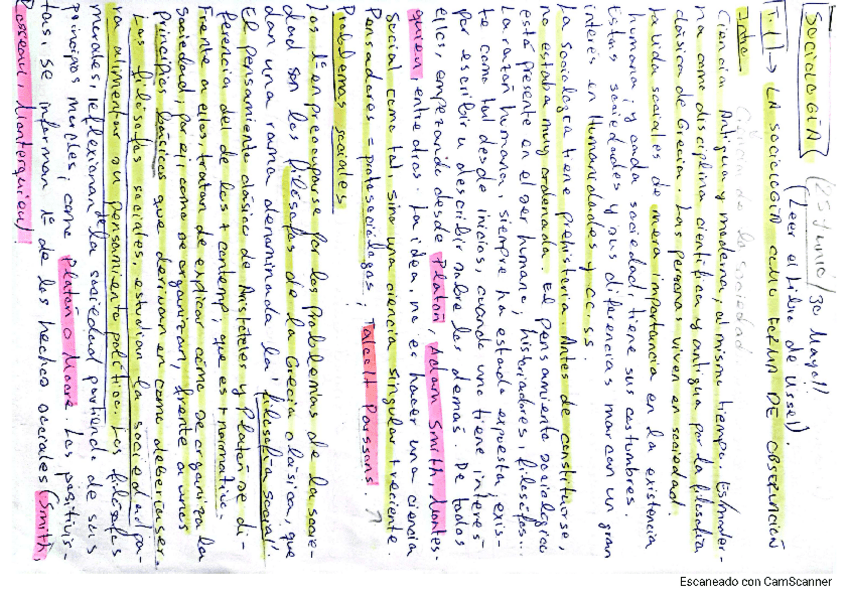 SOCIOLOGÍA (25 Junio / 30 Mayo!!
(Leer el libro de Ussel).
T.1 → LA SOCIOLOGÍA COMO FORMA DE OBSERVACIÓN
Intro. Ciencia de la sociedad
Ciencia Antigua y moderna, al mismo tiempo. Es moder-
na como disciplina científica y antigua por la filosofía
clásica de Grecia. Las personas viven en sociedad.
La vida social es de mera importancia en la existencia
humana; y cada sociedad, tiene sus costumbres.
Estas sociedades y sus diferencias marcan un gran
interés en Humanidades y CC.SS.
La sociología tiene prehistoria. Antes de constituirse,
no estaba muy ordenada. El pensamiento sociológico
está presente en el ser humano; historiadores, filósofos...
La razón humana, siempre ha estado expuesta, exis-
te como tal desde inicios, cuando uno tiene interés
por escribir u describir sobre los demás. De todos
ellos, empezando desde Platón, Adam Smith, Montes-
quieu, entre otros. La idea, no es hacer una ciencia
social como tal, sino una ciencia singular + reciente.
Pensadores = protosociólogos; Talcott Parssons.
Problemas sociales
Los 1º en preocuparse por los problemas de la socie-
dad son los filósofos de la Grecia clásica, que
dan una rama denominada la 'filosofía social'.
El pensamiento clásico de Aristóteles y Platón se di-
ferencia del de los + contemp; que es + normativo.
Frente a ellos, tratan de explicar cómo se organiza la
sociedad, por ej; como se organizan, frente a unos
principios básicos que derivan en como debería ser.
Los filósofos sociales, estudian la sociedad pa-
ra alimentar su pensamiento político. Los filósofos
morales, reflexionan de la sociedad partiendo de sus
principios morales; como Platón o Moore. Los positivis-
tas, se informan 1º de los hechos sociales (Smith,
Rosseau, Montesquieu).
Escaneado con CamScanner